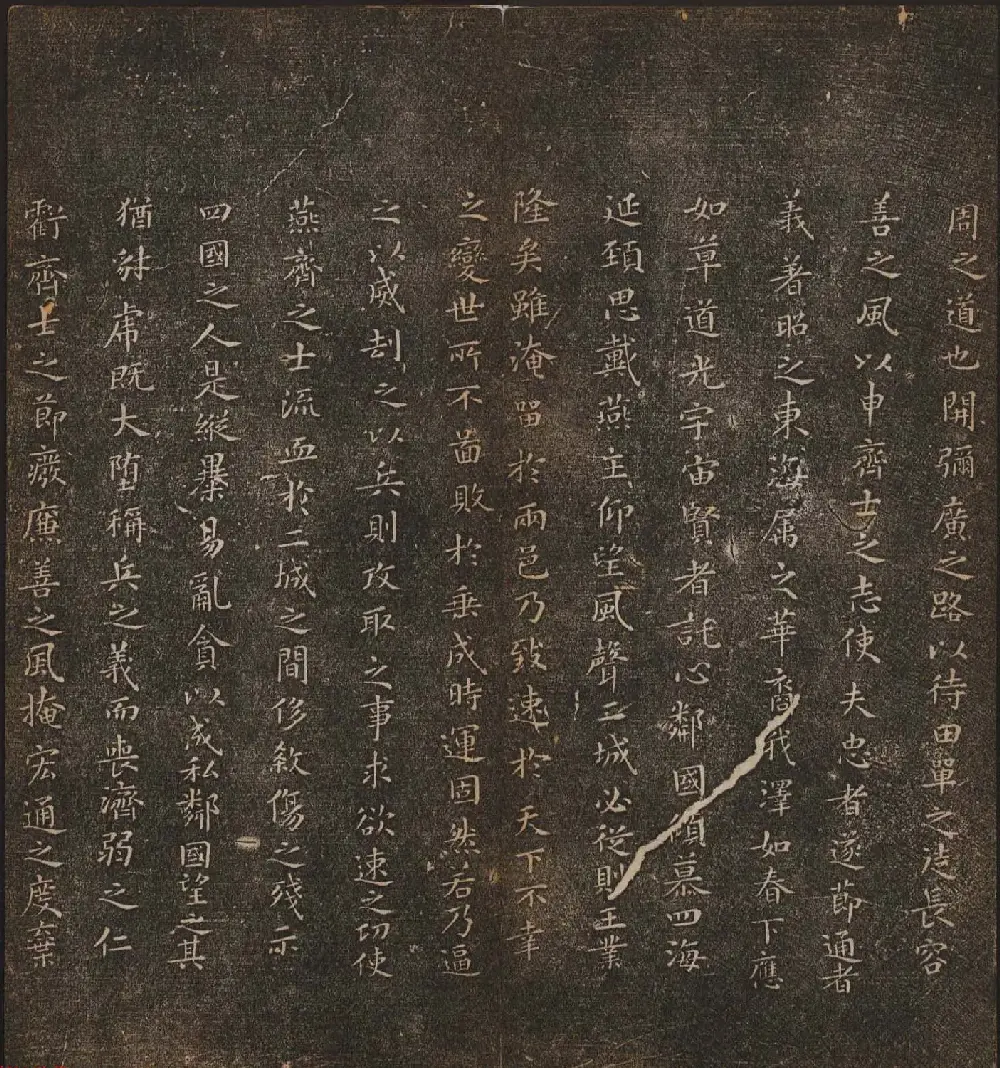 周之道也開彌廣之路以待田單之徒長容
善之風以申齊士之志使夫忠者遂節通者
義著昭之東海属之華裔我澤如春下應
如草道光宇宙賢者託心鄰國傾慕四海
延頸思戴燕主仰望風聲二城必從則王業
隆矣雖淹留於兩邑乃致速於天下不幸
之變世所不啚敗於垂成時運固然若乃逼
之以威刧之以兵則攻取之事求欲速之功使
燕齊之士流血於二城之間侈敘傷之殘示
四國之人是縱暴易亂貪以成私鄰國望之其
猶豺虎既大墮稱兵之義而喪濟弱之仁
虧齊士之節廢廉善之風掩宏通之度棄